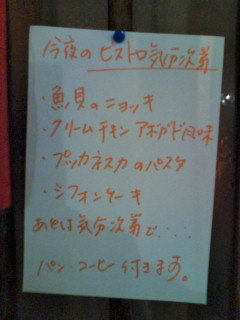 今夜のビストロ気分次第
・魚貝のニョッキ
・クリームチキンアボガド風味
・プッタネスカのパスタ
・シフォンケーキ
あとは気分次第で・・・・
パン・コーヒー付きます。